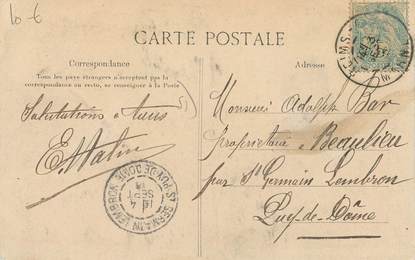 10-€
CARTE POSTALE
Correspondance
Tous les pays étrangers n'acceptent pas la
correspondance au recto, se renseigner à la Poste
Adresse
Salutations à tous
E. Matin
Monsieur Adolph Bar
Propriétaire à Beaulieu
par St Germain Lembron
Puy-de-Dôme
ST GERMAIN LEMBRON
PUY-DE-DOME
4
SEPT
REIMS
MARNE